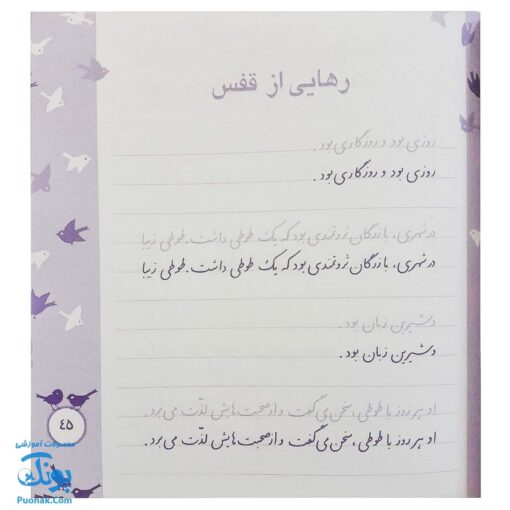 رهایی از قفس
روزی بود و روزگاری بود.
روزی بود و روزگاری بود.
در شهری، بازرگان ثروتمندی بود که یک طوطی داشت. طوطی زیبا
در شهری، بازرگان ثروتمندی بود که یک طوطی داشت. طوطی زیبا
و شیرین زبان بود.
و شیرین زبان بود.
او هر روز با طوطی، سخن می‌گفت و از صحبت‌هایش لذّت می‌برد.
او هر روز با طوطی، سخن می‌گفت و از صحبت‌هایش لذّت می‌برد.
۴۵
محصولات آموزشی
پونک
Puonak.Com